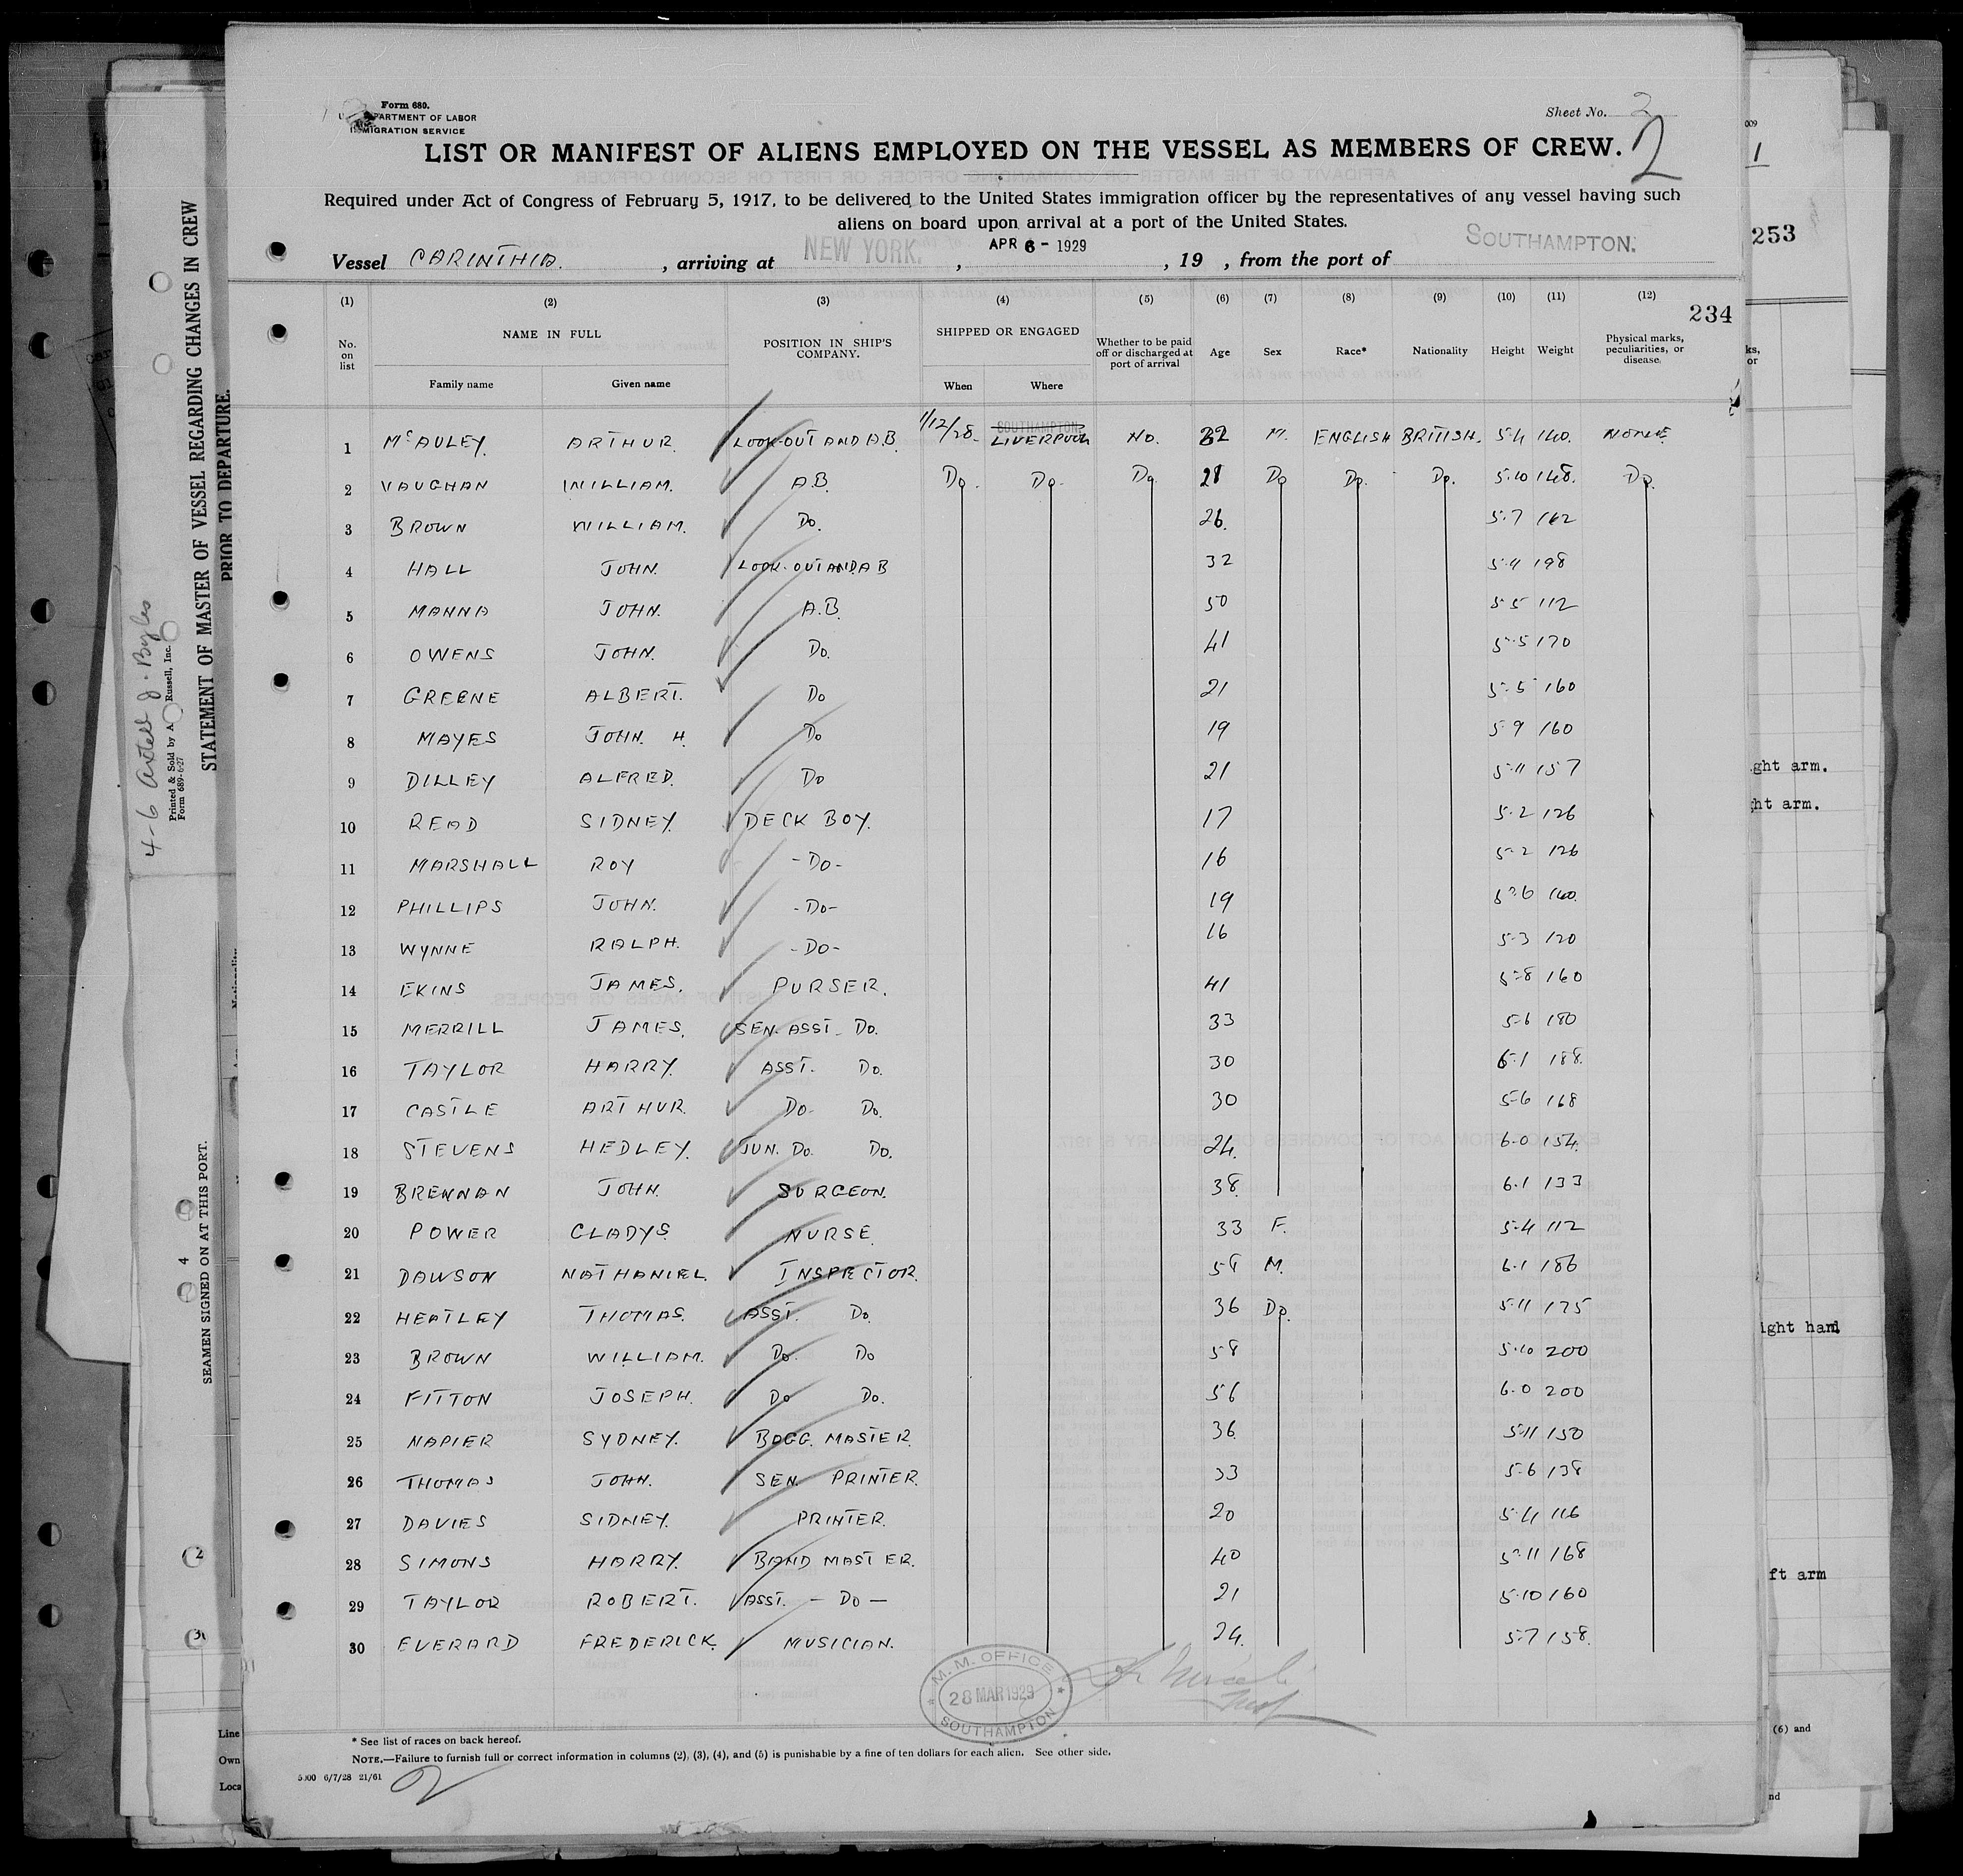 Form 680.
U. S. DEPARTMENT OF LABOR
IMMIGRATION SERVICE
Sheet No. 2
2
LIST OR MANIFEST OF ALIENS EMPLOYED ON THE VESSEL AS MEMBERS OF CREW.
Required under Act of Congress of February 5, 1917, to be delivered to the United States immigration officer by the representatives of any vessel having such
aliens on board upon arrival at a port of the United States.
Vessel CARINTHIA. , arriving at NEW YORK. , APR 6 - 1929 , 19 , from the port of SOUTHAMPTON.
(1) (2) (3) (4) (5) (6) (7) (8) (9) (10) (11) (12)
234
No. on list NAME IN FULL Family name Given name POSITION IN SHIP'S COMPANY. SHIPPED OR ENGAGED When Where Whether to be paid off or discharged at port of arrival Age Sex Race* Nationality Height Weight Physical marks, peculiarities, or disease.
1 McAULEY. ARTHUR. LOOK-OUT AND A.B 1/12/28. SOUTHAMPTON. LIVERPOOL NO. 32 M. ENGLISH BRITISH. 5-4 140. NONE
2 VAUGHAN WILLIAM. A.B. Do. Do. Do 28 Do Do. Do. 5-10 148. Do.
3 BROWN WILLIAM. Do. 26. 5-7 162
4 HALL JOHN. LOOK-OUT AND A B 32 5-9 198
5 MANNA JOHN. A.B. 50 5-5 112
6 OWENS JOHN. Do. 41 5-5 170
7 GREENE ALBERT. Do 21 5-5 160
8 MAYES JOHN. H. Do 19 5-9 160
9 DILLEY ALFRED. Do 21 5-11 157
10 READ SIDNEY. DECK BOY. 17 5-2 126
11 MARSHALL ROY -Do- 16 5-2 126
12 PHILLIPS JOHN. -Do- 19 5-6 140.
13 WYNNE RALPH. -Do- 16 5-3 120
14 EKINS JAMES. PURSER. 41 5-8 160
15 MERRILL JAMES. SEN. ASST. Do. 33 5-6 180
16 TAYLOR HARRY. ASST. Do. 30 6-1 188.
17 CASTLE ARTHUR. Do- Do. 30 5-6 168
18 STEVENS HEDLEY. JUN. Do. Do. 24. 6-0 154.
19 BRENNAN JOHN. SURGEON. 38. 6-1 133
20 POWER GLADYS. NURSE. 33 F. 5-4 112
21 DAWSON NATHANIEL. INSPECTOR. 58 M. 6-1 186
22 HEATLEY THOMAS. ASST. Do. 36 Do. 5-11 175
23 BROWN WILLIAM. Do. Do 58 5-10 200
24 FITTON JOSEPH. Do Do. 56 6-0 200
25 NAPIER SYDNEY. BAGG. MASTER. 36 5-11 150
26 THOMAS JOHN. SEN. PRINTER. 33 5-6 138
27 DAVIES SIDNEY. PRINTER. 20 5-4 116
28 SIMONS HARRY. BAND MASTER. 40 5-11 168
29 TAYLOR ROBERT. ASST. - Do - 21 5-10 160
30 EVERARD FREDERICK. MUSICIAN. 24. 5-7 158.
M. M. OFFICE
28 MAR 1929
SOUTHAMPTON
* See list of races on back hereof.
NOTE.—Failure to furnish full or correct information in columns (2), (3), (4), and (5) is punishable by a fine of ten dollars for each alien. See other side.
5000 6/7/28 21/61
2
STATEMENT OF MASTER OF VESSEL REGARDING CHANGES IN CREW
PRIOR TO DEPARTURE.
Printed & Sold by A. Russell, Inc.
Form 689-6/27
SEAMEN SIGNED ON AT THIS PORT.
4
Line
Own
Loca
1
253
ks,
or
ght arm.
ght arm.
ight hand
ft arm
(6) and
nd